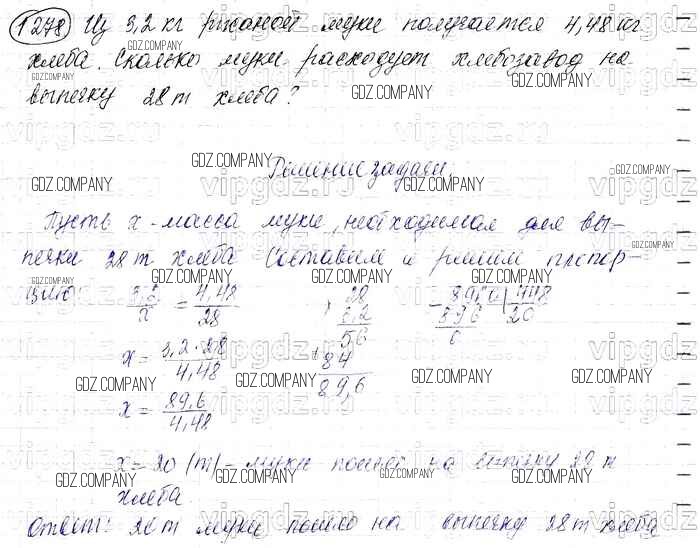 1278) Из 3,2 кг ржаной муки получается 4,48 кг
хлеба. Сколько муки расходует хлебозавод на
выпечку 28 т хлеба?
Решение задачи.
Пусть x - масса муки, необходимая для вы-
печки 28 т хлеба. Составим и решим пропор-
цию
3,2/x = 4,48/28
x = 3,2·28/4,48
x = 89,6/4,48
28
3,2
56
+84
89,6
8960 448
896 20
0
x = 20 (т) - муки пошло на выпечку 28 т
хлеба.
Ответ: 20 т муки пошло на выпечку 28 т хлеба
GDZ.COMPANY
vipgdz.ru